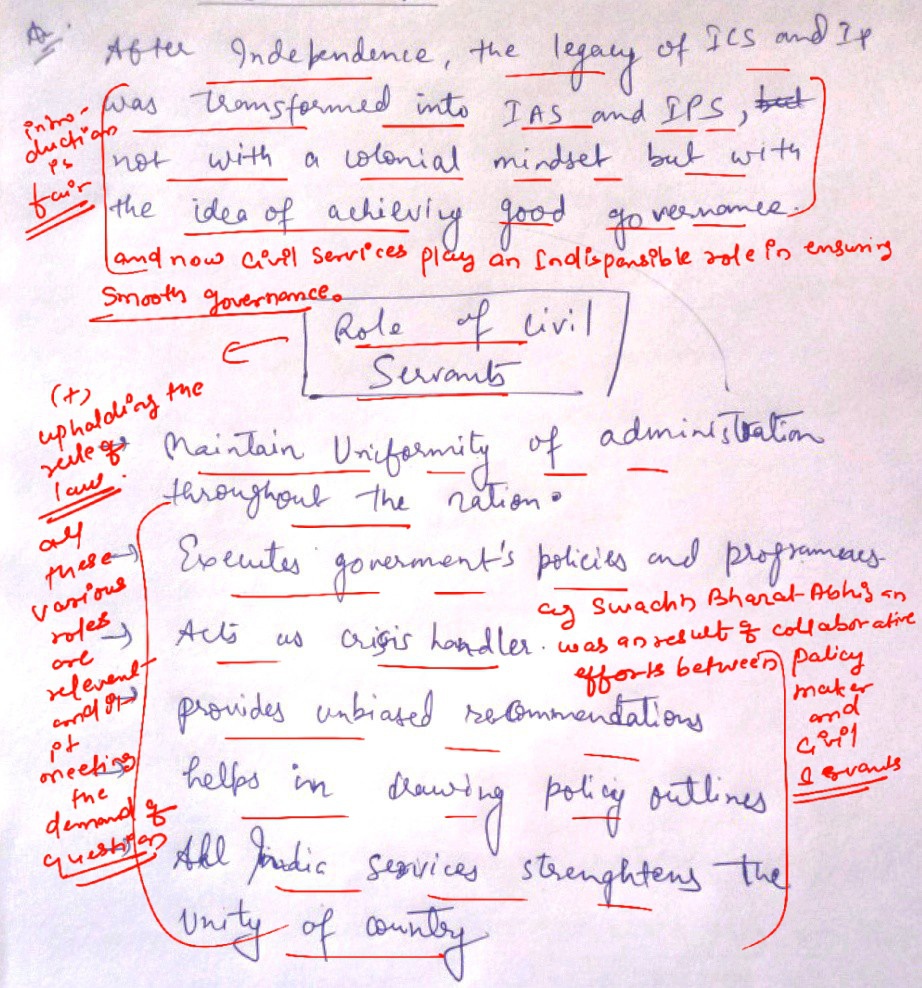 A.
After Independence, the legacy of ICS and IP
was transformed into IAS and IPS, but
not with a colonial mindset but with
the idea of achieving good governance.
intro-
duction
is
fair
and now civil services play an Indispensible role in ensuring
smooth governance.
Role of Civil
Servants
(+)
upholding the
rule of
law.
Maintain Uniformity of administration
throughout the nation.
Executes goverment's policies and programmes
eg Swachh Bharat Abhiyan
was as result of collaborative
efforts between policy
maker
and
civil
servants
Acts as crisis handler.
provides unbiased recommendations
helps in drawing policy outlines
All India services strenghtens the
Unity of country
all
these
various
roles
are
relevent
and it
is
meeting
the
demand of
question